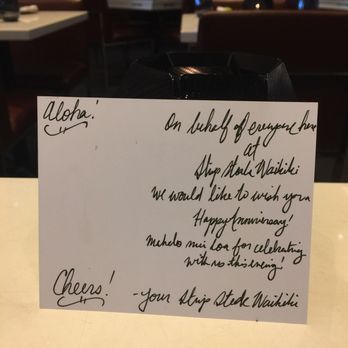 Aloha!
On behalf of everyone here
At
Strip Steak Waikiki
We would like to wish you a
Happy Anniversary!
mahalo nui Loa for celebrating
with us this evening!
Cheers!
- your Strip Steak Waikiki